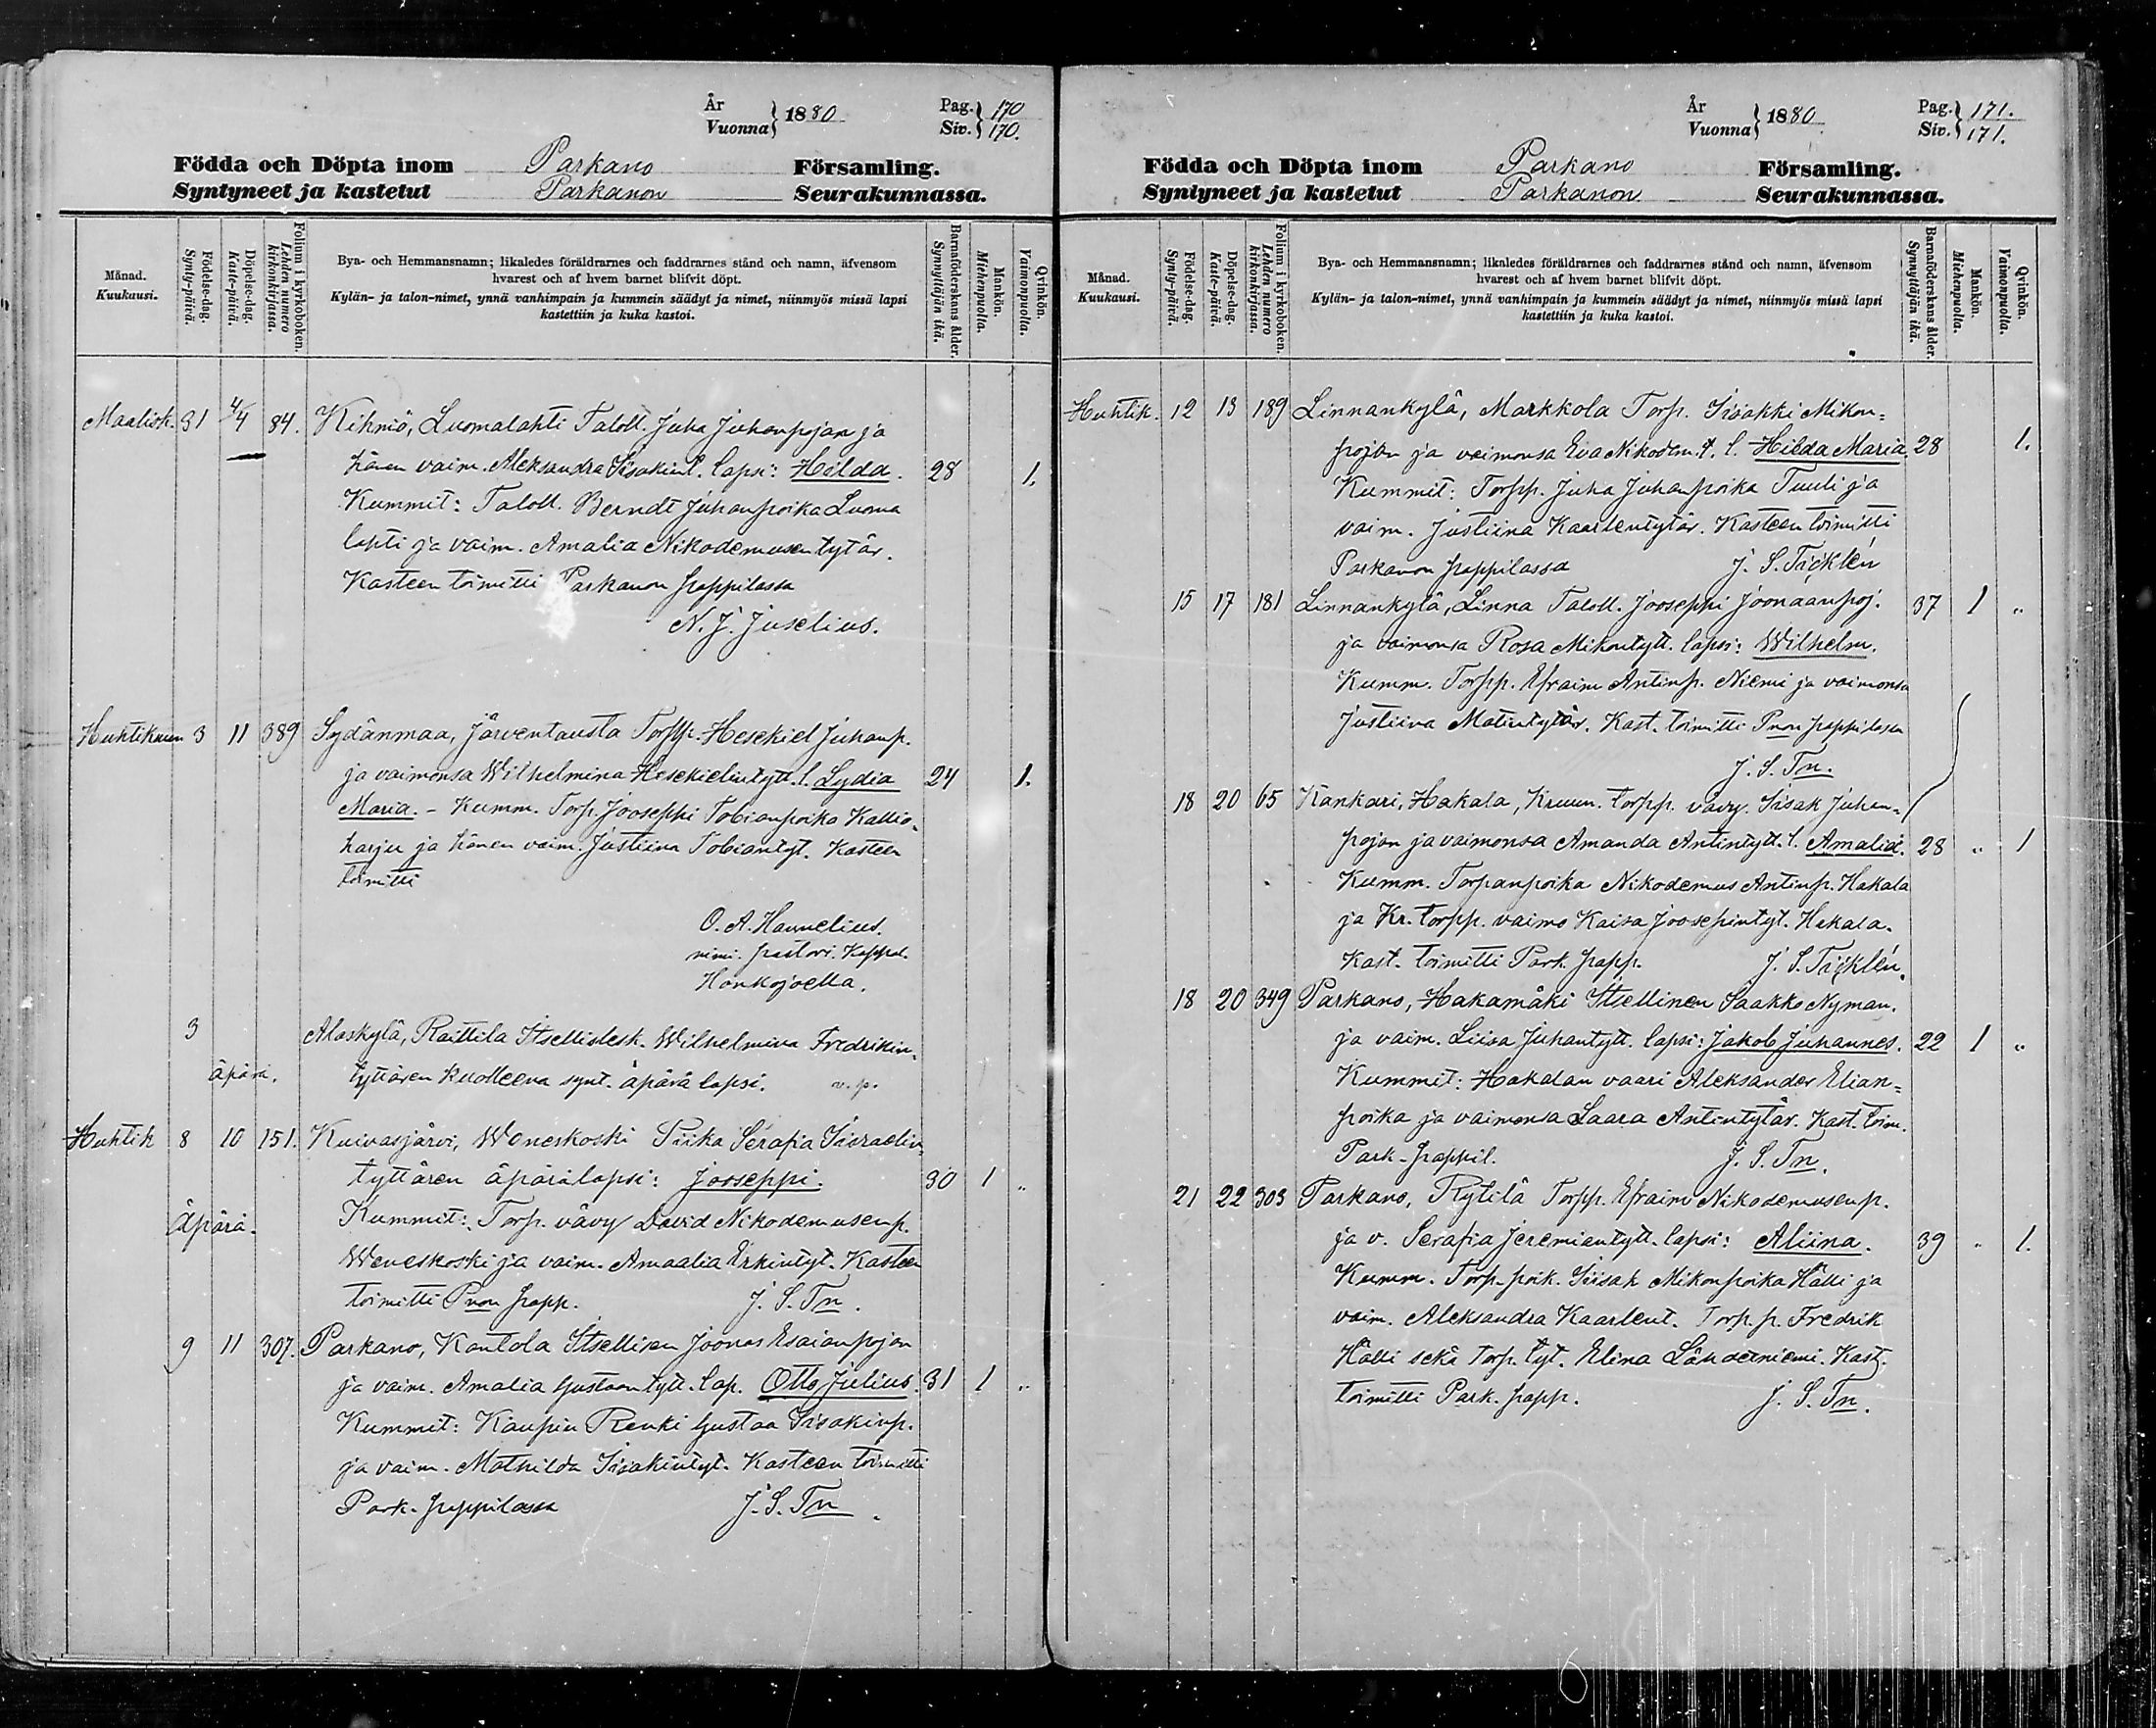 År
Vuonna } 1880
Pag. } 170
Siv. } 170.
Födda och Döpta inom Parkano Församling.
Syntyneet ja kastetut Parkanon Seurakunnassa.
Månad.
Kuukausi.
Födelse-dag.
Synty-päivä.
Döpelse-dag.
Kaste-päivä.
Folium i kyrkoboken.
Lehden numero
kirkonkirjassa.
Bya- och Hemmansnamn; likaledes föräldrarnes och faddrarnes stånd och namn, äfvensom
hvarest och af hvem barnet blifvit döpt.
Kylän- ja talon-nimet, ynnä vanhimpain ja kummein säädyt ja nimet, niinmyös missä lapsi
kastettiin ja kuka kastoi.
Barnaföderskans ålder.
Synnyttäjän ikä.
Mankön.
Miehenpuolla.
Qvinkön.
Vaimonpuolla.
Maalisk. 31 4/4 84. Kihniö, Luomalahti Taloll. Juha Juhanpojan ja
hänen vaim. Aleksandra Iisakint. lapsi: Hilda. 28 1.
Kummit: Taloll. Berndt Juhanpoika Luoma
lahti ja vaim. Amalia Nikodemusentytär.
Kasteen toimitti Parkanon pappilassa
N. J. Juselius.
Huhtikuun 3 11 389 Sydänmaa, Järventausta Torpp. Hesekiel Juhanp.
ja vaimonsa Wilhelmina Hesekielintytt. l. Lydia 24 1.
Maria. - Kumm. Torp. Jooseppi Tobianpoika Kallio-
harju ja hänen vaim. Justiina Tobiantyt. Kasteen
toimitti
O. A. Hannelius.
nimi. pastori. Kappal.
Honkojoella.
3 Alaskylä, Raittila Itsellislesk. Wilhelmina Fredrikin-
äpärä. tyttären kuolleena synt. äpärä lapsi. w. p.
Huhtik 8 10 151. Kuivasjärvi, Weneskoski Piika Serafia Iisraelin
tyttären äpärälapsi: Jooseppi. 30 1 "
Äpärä. Kummit: Torp. vävy David Nikodemusenp.
Weneskoski ja vaim. Amaalia Erkintyt. Kasteen
toimitti Pnon papp. J. S. Tn.
9 11 307. Parkano, Kantola Itsellisen Joonas Esaianpojan
ja vaim. Amalia Gustaantytt. lap. Otto Julius. 31 1 "
Kummit: Kaupin Renki Gustaa Iisakinp.
ja vaim. Mathilda Iisakintyt. Kasteen toimitti
Park. pappilassa J. S. Tn.
År
Vuonna } 1880
Pag. } 171.
Siv. } 171.
Födda och Döpta inom Parkano Församling.
Syntyneet ja kastetut Parkanon Seurakunnassa.
Månad.
Kuukausi.
Födelse-dag.
Synty-päivä.
Döpelse-dag.
Kaste-päivä.
Folium i kyrkoboken.
Lehden numero
kirkonkirjassa.
Bya- och Hemmansnamn; likaledes föräldrarnes och faddrarnes stånd och namn, äfvensom
hvarest och af hvem barnet blifvit döpt.
Kylän- ja talon-nimet, ynnä vanhimpain ja kummein säädyt ja nimet, niinmyös missä lapsi
kastettiin ja kuka kastoi.
Barnaföderskans ålder.
Synnyttäjän ikä.
Mankön.
Miehenpuolla.
Qvinkön.
Vaimonpuolla.
Huhtik. 12 13 189 Linnankylä, Markkola Torp. Iisakki Mikon-
pojan ja vaimonsa Eva Nikodem. t. l. Hilda Maria. 28 1.
Kummit: Torpp. Juha Juhanpoika Tuuli ja
vaim. Justiina Kaarlentytär. Kasteen toimitti
Parkanon pappilassa J. S. Täcklén
15 17 181 Linnankylä, Linna Taloll. Jooseppi Joonaanpoj. 37 1 "
ja vaimonsa Rosa Mikontytt. lapsi: Wilhelm.
Kumm. Torpp. Efraim Antinp. Niemi ja vaimonsa
Justiina Matintytär. Kast. toimitti Pnon pappilassa
J. S. Tn.
18 20 65 Kankari, Hakala, Kruun. torpp. vävy. Iisak Juhan-
pojan ja vaimonsa Amanda Antintytt. l. Amalia. 28 " 1
Kumm. Torpanpoika Nikodemus Antinp. Hakala
ja Kr. torpp. vaimo Kaisa Joosepintyt. Hakala.
Kast. toimitti Park. papp. J. S. Täcklén.
18 20 349 Parkano, Hakamäki Itsellinen Saakko Nyman.
ja vaim. Liisa Juhantytt. lapsi: Jakob Juhannes. 22 1 "
Kummit: Hakalan vaari Aleksander Elian-
poika ja vaimonsa Laara Antintytär. Kast. toim.
Park. pappil. J. S. Tn.
21 22 303 Parkano, Rytilä Torpp. Efraim Nikodemusenp.
ja v. Serafia Jeremiantytt. lapsi: Aliina. 39 " 1.
Kumm. Torp. poik. Iisak Mikonpoika Hälli ja
vaim. Aleksandra Kaarlent. Torp. p. Fredrik
Hälli sekä Torp. tyt. Elina Lähdeniemi. Kast.
toimitti Park. papp. J. S. Tn.